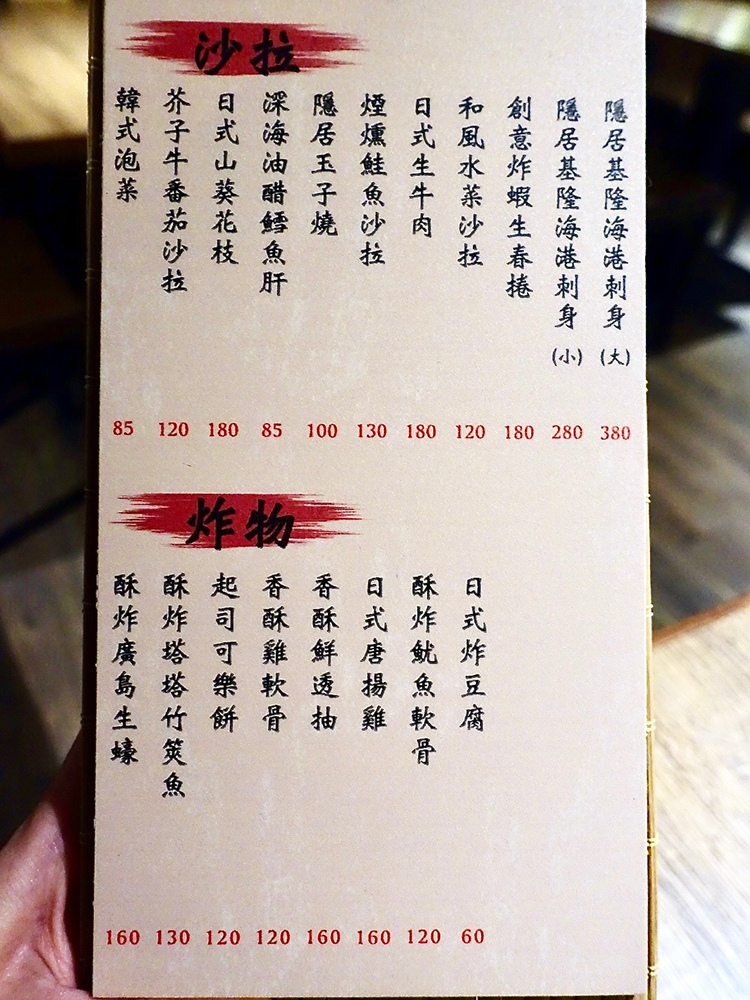 沙拉
韓式泡菜
芥子牛番茄沙拉
日式山葵花枝
深海油醋鱈魚肝
隱居玉子燒
煙燻鮭魚沙拉
日式生牛肉
和風水菜沙拉
創意炸蝦生春捲
隱居基隆海港刺身(小)
隱居基隆海港刺身(大)
85 120 180 85 100 130 180 120 180 280 380
炸物
酥炸廣島生蠔
酥炸塔塔竹筴魚
起司可樂餅
香酥雞軟骨
香酥鮮透抽
日式唐揚雞
酥炸魷魚軟骨
日式炸豆腐
160 130 120 120 160 160 120 60